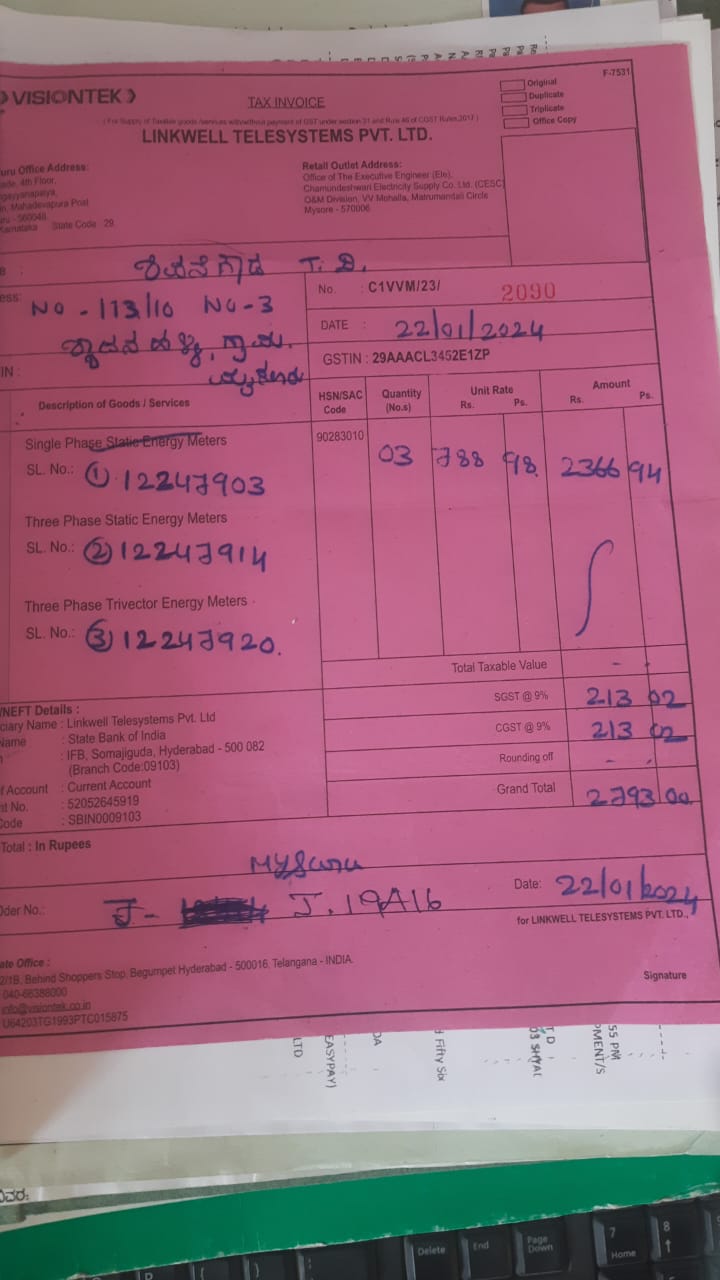 F-7531
VISIONTEK
TAX INVOICE
Original
Duplicate
Triplicate
Office Copy
(For Supply of Taxable goods /services with/without payment of GST under section 31 and Rule 46 of CGST Rules,2017)
LINKWELL TELESYSTEMS PVT. LTD.
uru Office Address:
ade, 4th Floor,
gayyanapalya,
n, Mahadevapura Post
uru - 560048
Karnataka State Code 29
Retail Outlet Address:
Office of The Executive Engineer (Ele),
Chamundeshwari Electricity Supply Co. Ltd. (CESC)
O&M Division, VV Mohalla, Matrumandali Circle
Mysore - 570006
T. D.
ess: No - 113/10 No-3
No. : C1VVM/23/ 2090
DATE : 22/01/2024
GSTIN : 29AAACL3452E1ZP
IN :
Description of Goods / Services
HSN/SAC Code
Quantity (No.s)
Unit Rate
Rs. Ps.
Amount
Rs. Ps.
Single Phase Static Energy Meters
90283010 03 788 98. 2366 94
SL. No.: ① 12247903
Three Phase Static Energy Meters
SL. No.: ② 12247914
Three Phase Trivector Energy Meters
SL. No.: ③ 12247920.
Total Taxable Value - .
SGST @ 9% 213 02
CGST @ 9% 213 02
Rounding off - .
Grand Total 2793 00.
/NEFT Details :
ciary Name : Linkwell Telesystems Pvt. Ltd
Name : State Bank of India
: IFB, Somajiguda, Hyderabad - 500 082
(Branch Code:09103)
f Account : Current Account
nt No. : 52052645919
Code : SBIN0009103
Total : In Rupees
Mysuru
Date: 22/01/2024
der No.: J- J.19A16
for LINKWELL TELESYSTEMS PVT. LTD.,
ate Office :
2/1B, Behind Shoppers Stop, Begumpet Hyderabad - 500016, Telangana - INDIA.
040-66388000
info@visiontek.co.in
U64203TG1993PTC015875
Signature
LTD
EASYPAY)
OA
d Fifty Six
T D
03 SHYAL
PMENT/S
55 PM
Delete
End
Page Down
7
Home
8